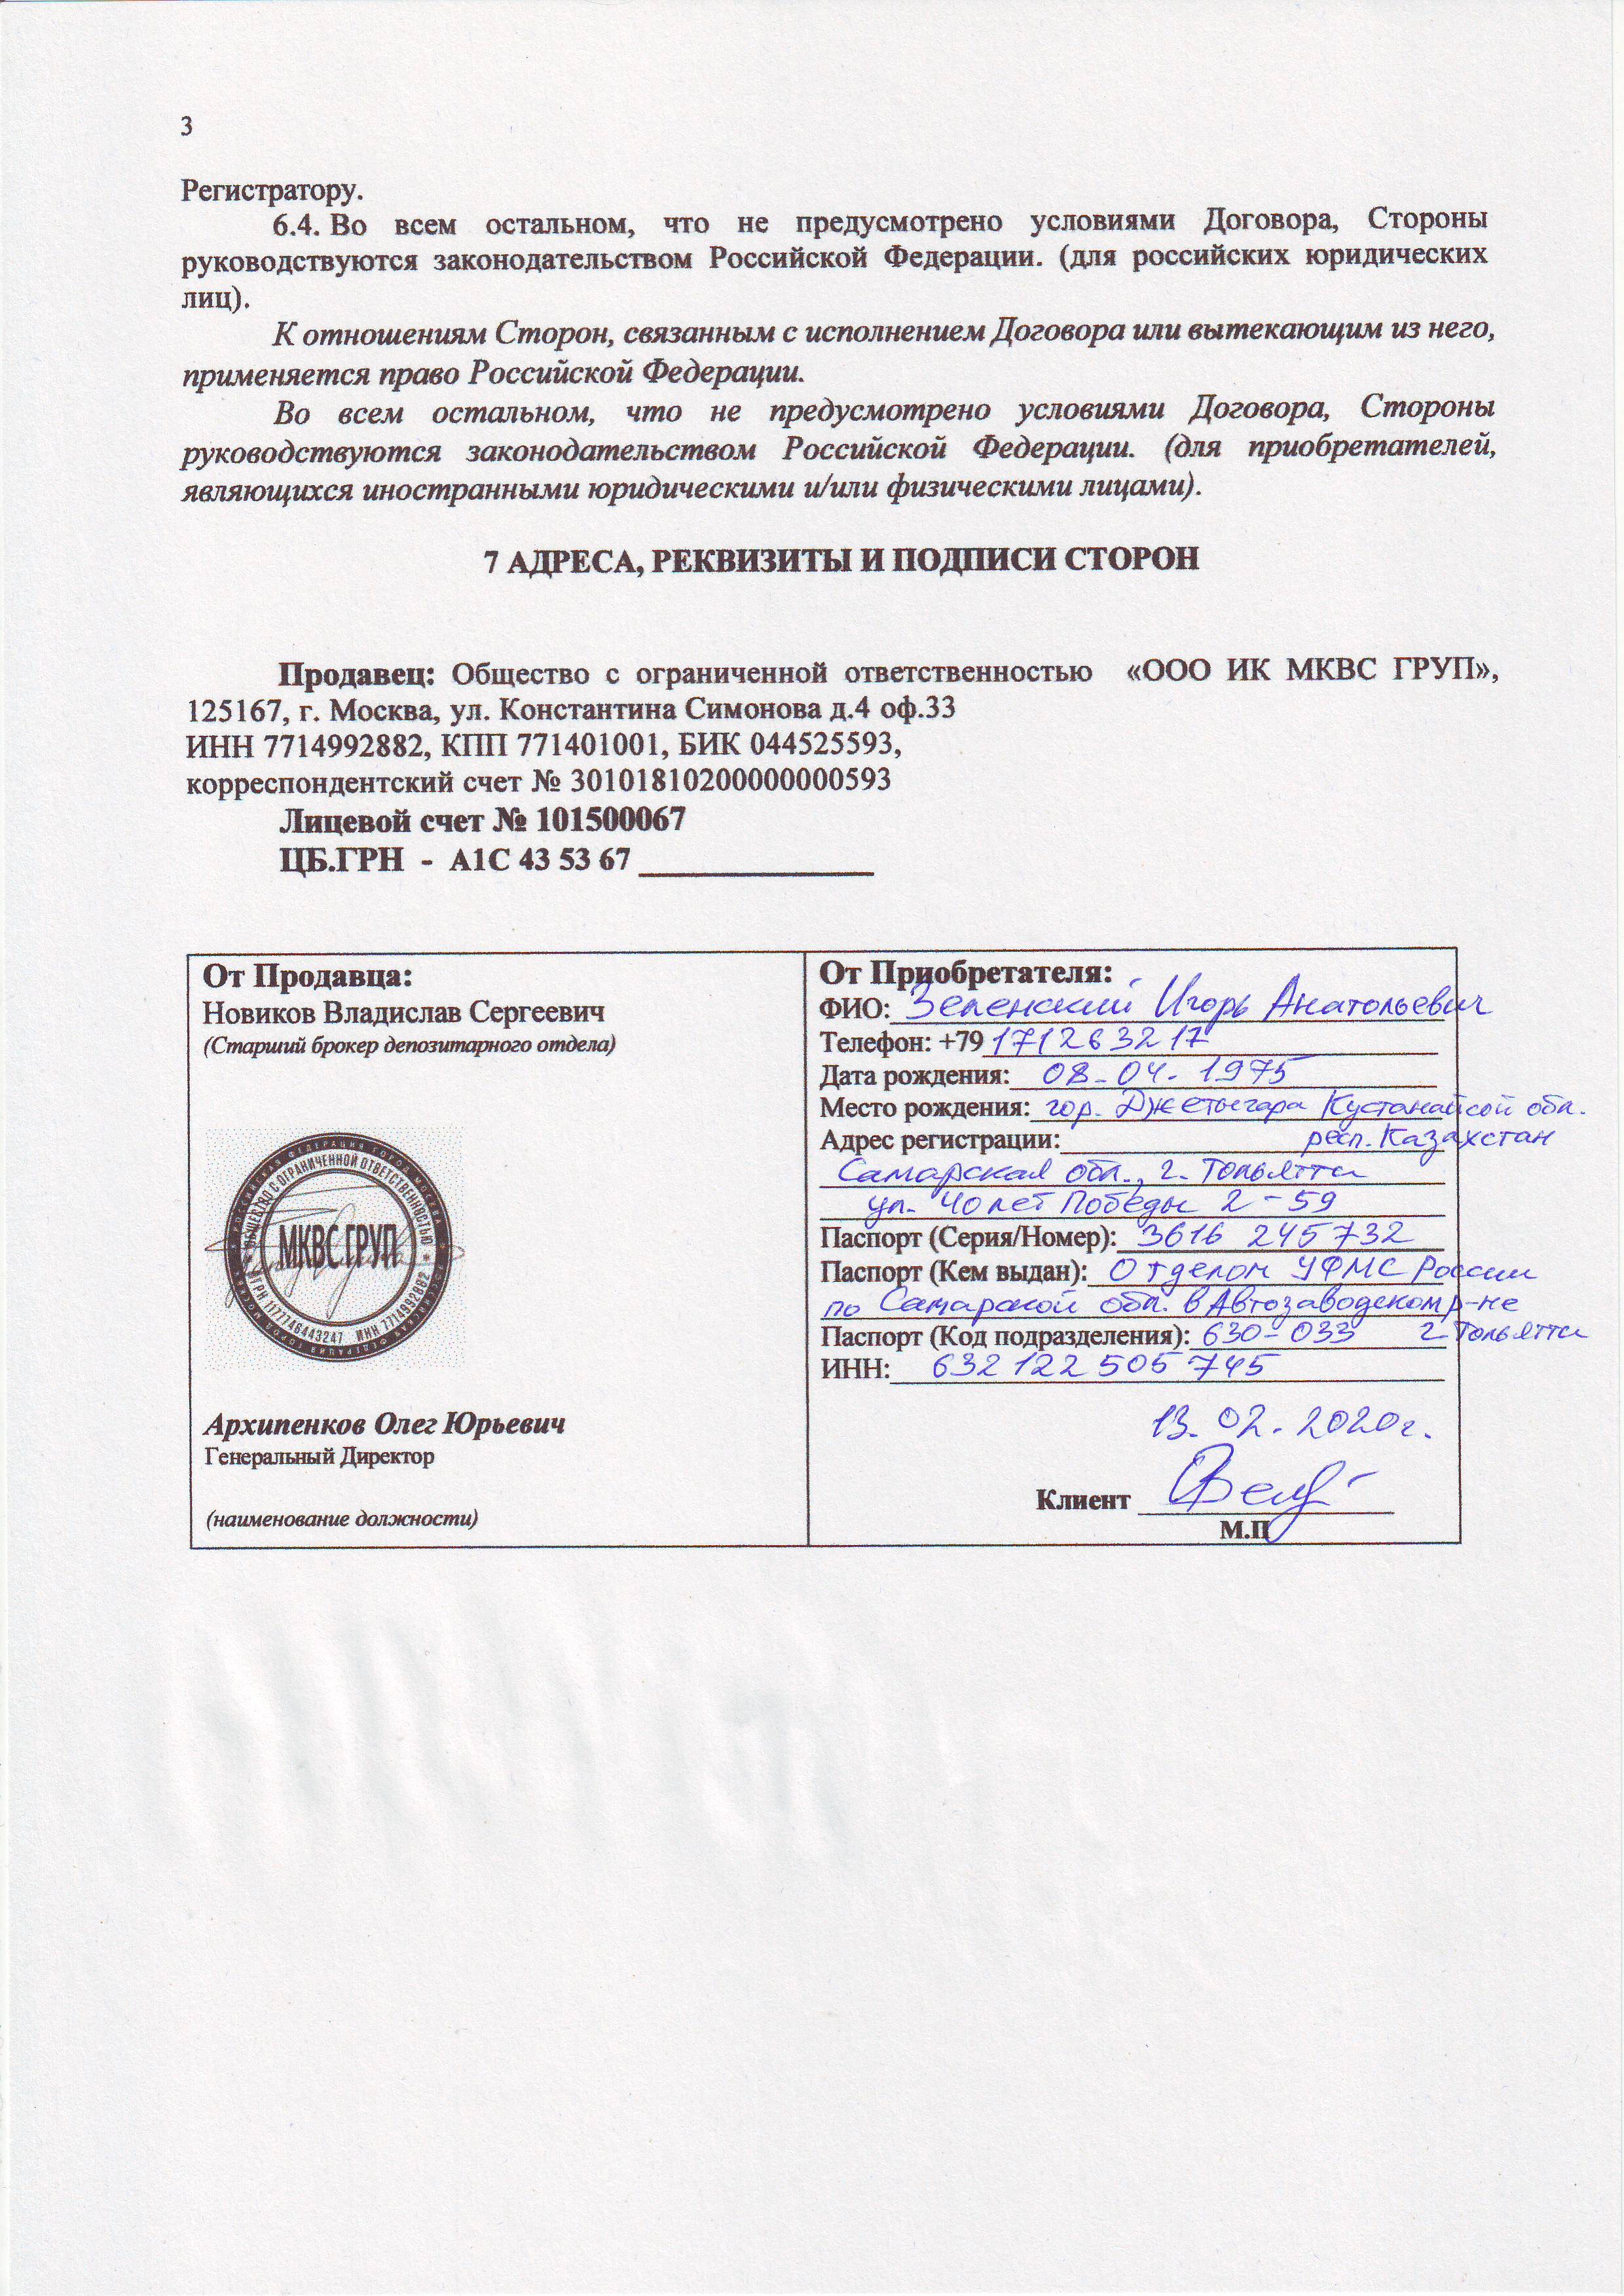 3
Регистратору.
6.4. Во всем остальном, что не предусмотрено условиями Договора, Стороны
руководствуются законодательством Российской Федерации. (для российских юридических
лиц).
К отношениям Сторон, связанным с исполнением Договора или вытекающим из него,
применяется право Российской Федерации.
Во всем остальном, что не предусмотрено условиями Договора, Стороны
руководствуются законодательством Российской Федерации. (для приобретателей,
являющихся иностранными юридическими и/или физическими лицами).
7 АДРЕСА, РЕКВИЗИТЫ И ПОДПИСИ СТОРОН
Продавец: Общество с ограниченной ответственностью «ООО ИК МКВС ГРУП»,
125167, г. Москва, ул. Константина Симонова д.4 оф.33
ИНН 7714992882, КПП 771401001, БИК 044525593,
корреспондентский счет № 30101810200000000593
Лицевой счет № 101500067
ЦБ.ГРН - А1С 43 53 67
От Продавца:
Новиков Владислав Сергеевич
(Старший брокер депозитарного отдела)
ОБЩЕСТВО С ОГРАНИЧЕННОЙ ОТВЕТСТВЕННОСТЬЮ
МКВС ГРУП
ОГРН 1177746443247 ИНН 7714992882
Архипенков Олег Юрьевич
Генеральный Директор
(наименование должности)
От Приобретателя:
ФИО: Зеленский Игорь Анатольевич
Телефон: +79171263217
Дата рождения: 08-04-1975
Место рождения: гор. Джетыгара Кустанайсой обл.
Адрес регистрации: респ. Казахстан
Самарская обл., г. Тольятти
ул. 40 лет Победы 2-59
Паспорт (Серия/Номер): 3616 245732
Паспорт (Кем выдан): Отделом УФМС России
по Самарской обл. в Автозаводском р-не
Паспорт (Код подразделения): 630-033 г. Тольятти
ИНН: 632122505745
13.02.2020г.
Клиент
М.П